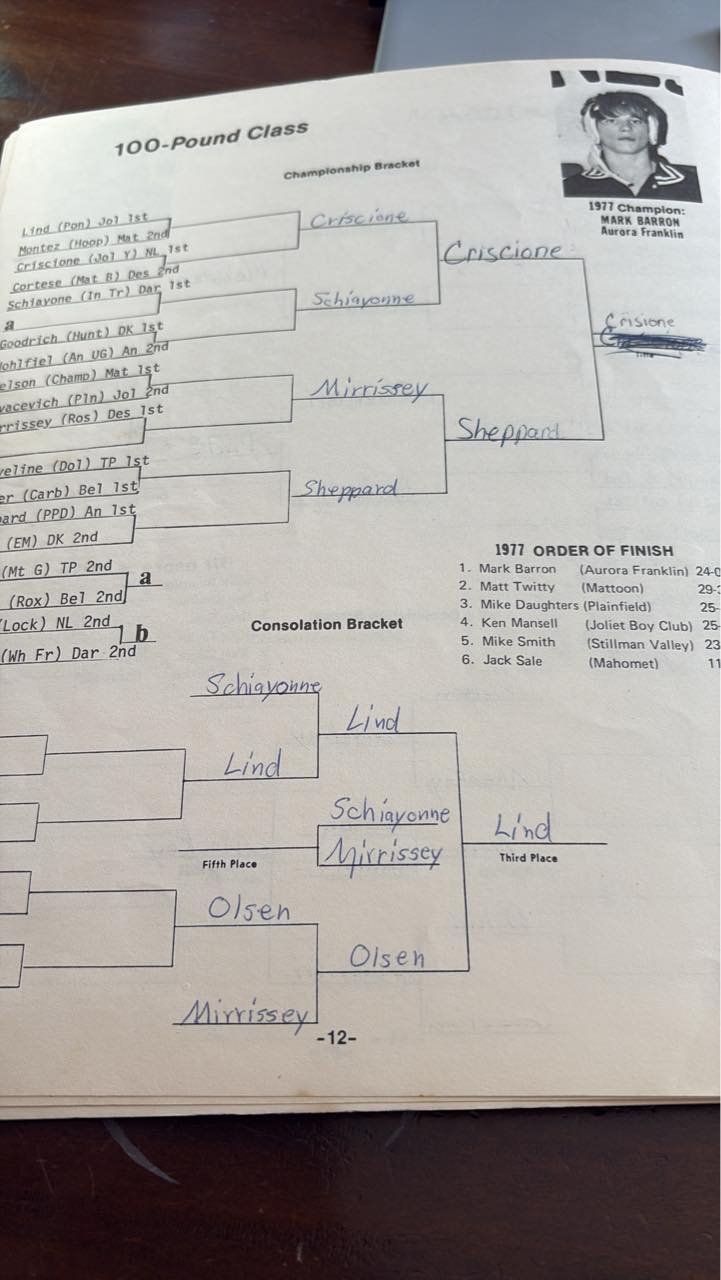 100-Pound Class
Championship Bracket
1977 Champion:
MARK BARRON
Aurora Franklin
Lind (Pon) Jol 1st
Montez (Hoop) Mat 2nd
Criscione (Jol Y) NL 1st
Cortese (Mat B) Des 2nd
Schiavone (In Tr) Dar 1st
a
Goodrich (Hunt) DK 1st
ohlfiel (An UG) An 2nd
elson (Champ) Mat 1st
vacevich (Pln) Jol 2nd
rrissey (Ros) Des 1st
veline (Dol) TP 1st
er (Carb) Bel 1st
ard (PPD) An 1st
(EM) DK 2nd
(Mt G) TP 2nd
a
(Rox) Bel 2nd
(Lock) NL 2nd
b
(Wh Fr) Dar 2nd
Criscione
Schiayonne
Mirrissey
Sheppard
Criscione
Sheppard
Crisione
1977 ORDER OF FINISH
1. Mark Barron (Aurora Franklin) 24-0
2. Matt Twitty (Mattoon) 29-
3. Mike Daughters (Plainfield) 25-
4. Ken Mansell (Joliet Boy Club) 25-
5. Mike Smith (Stillman Valley) 23
6. Jack Sale (Mahomet) 11
Consolation Bracket
Schiayonne
Lind
Lind
Schiayonne
Mirrissey
Fifth Place
Lind
Third Place
Olsen
Olsen
Mirrissey
-12-